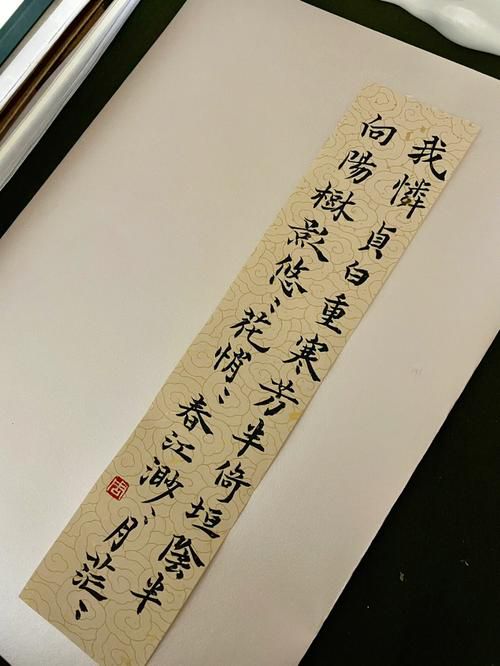 我憐貞白重寒芳半倚垣陰半
向陽樹影悠〻花悄〻春江渺〻月茫〻